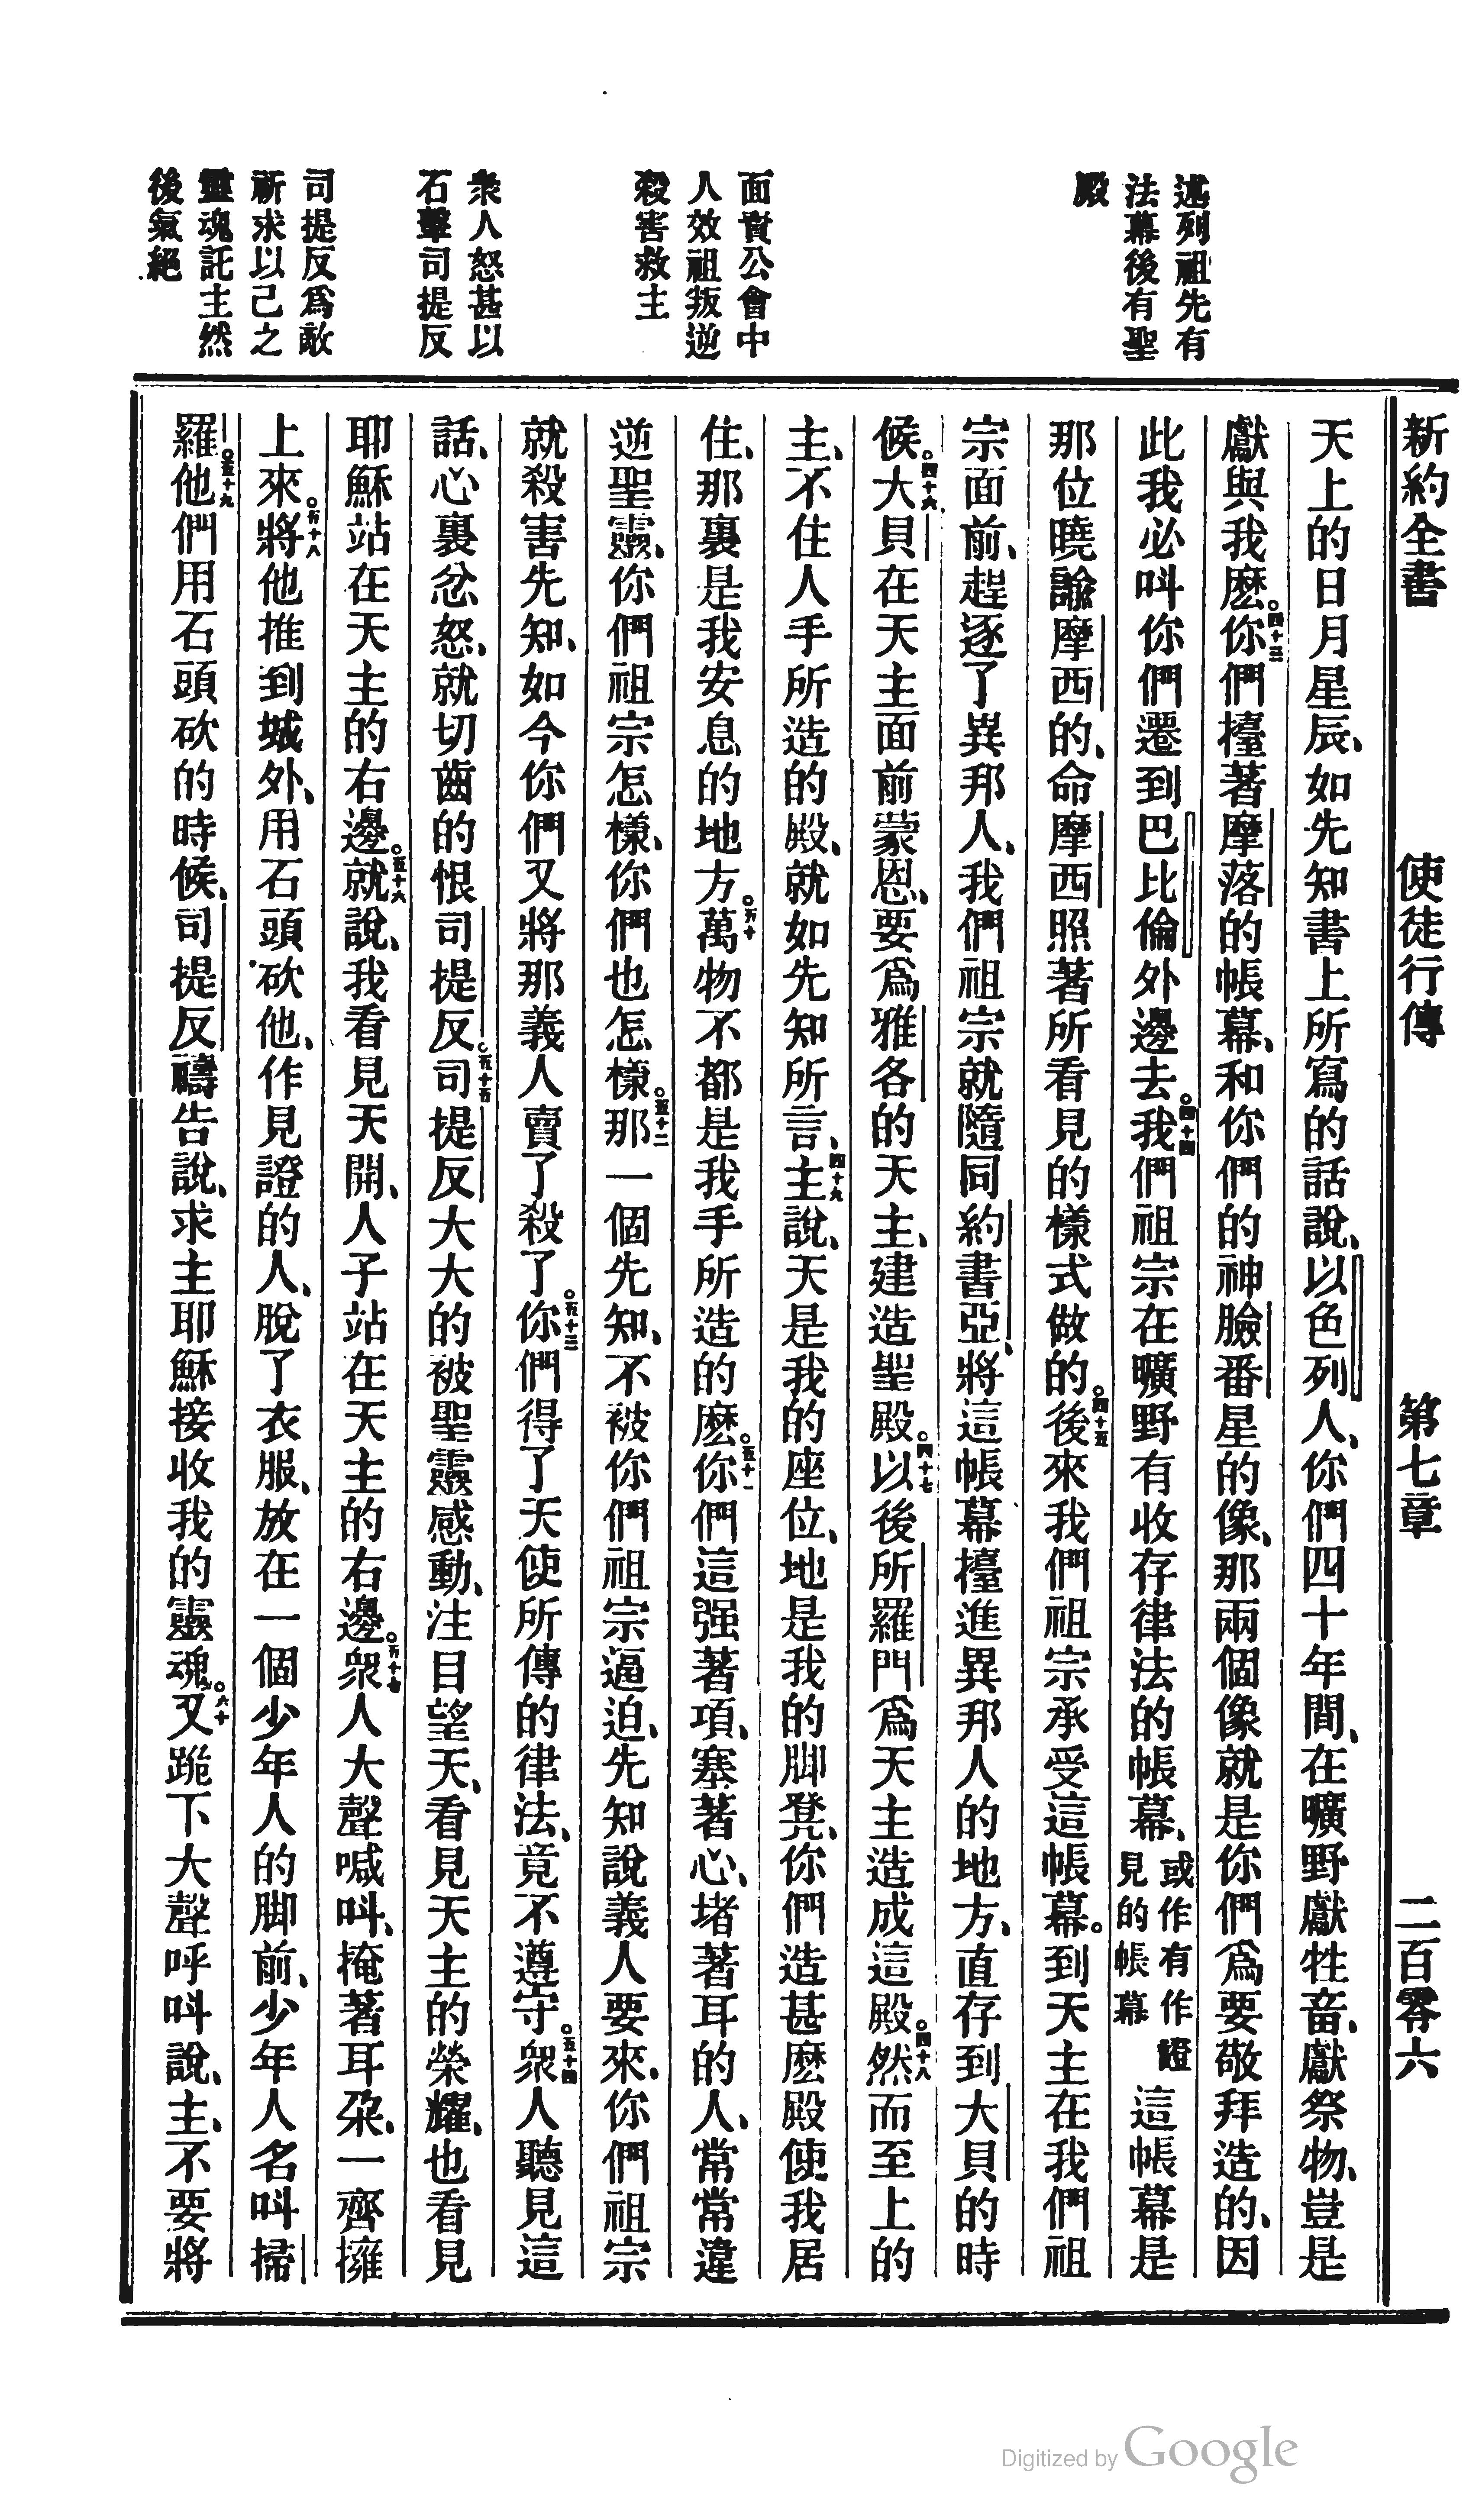 新約全書　使徒行傳　第七章　二百零六
述列祖先有
法幕後有聖
殿
面責公會中
人效祖叛逆
殺害救主
衆人怒甚以
石擊司提反
司提反爲敵
祈求以己之
靈魂託主然
後氣絕
天上的日月星辰、如先知書上所寫的話說、以色列人、你們四十年間、在曠野獻牲畜、獻祭物、豈是
獻與我麽。四十三你們擡著摩落的帳幕、和你們的神臉番星的像、那兩個像就是你們爲要敬拜造的、因
此我必呌你們遷到巴比倫外邊去。四十四我們祖宗在曠野有收存律法的帳幕、或作有作證見的帳幕這帳幕是
那位曉諭摩西的、命摩西照著所看見的樣式做的。四十五後來我們祖宗承受這帳幕。到天主在我們祖
宗面前、趕逐了異邦人、我們祖宗就隨同約書亞、將這帳幕擡進異邦人的地方、直存到大貝的時
候。四十六大貝在天主面前蒙恩、要爲雅各的天主、建造聖殿。四十七以後所羅門爲天主造成這殿。四十八然而至上的
主、不住人手所造的殿、就如先知所言、四十九主說、天是我的座位、地是我的脚凳、你們造甚麽殿使我居
住、那裏是我安息的地方。五十萬物不都是我手所造的麽。五十一你們這强著項、塞著心、堵著耳的人、常常違
逆聖靈、你們祖宗怎樣、你們也怎樣。五十二那一個先知、不被你們祖宗逼迫、先知說義人要來、你們祖宗
就殺害先知、如今你們又將那義人賣了殺了。五十三你們得了天使所傳的律法、竟不遵守。五十四衆人聽見這
話、心裏忿怒、就切齒的恨司提反。五十五司提反大大的被聖靈感動、注目望天、看見天主的榮耀、也看見
耶穌站在天主的右邊。五十六就說、我看見天開、人子站在天主的右邊。五十七衆人大聲喊呌、掩著耳朶、一齊擁
上來。五十八將他推到城外、用石頭砍他、作見證的人、脫了衣服、放在一個少年人的脚前、少年人名呌掃
羅。五十九他們用石頭砍的時候、司提反禱告說、求主耶穌接收我的靈魂。六十又跪下大聲呼呌說、主、不要將
Digitized by Google